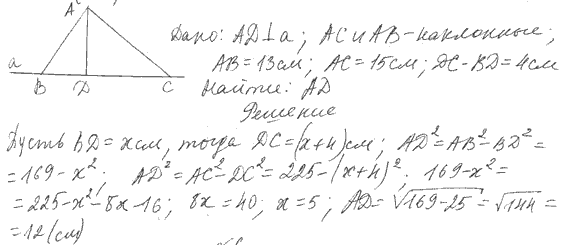 A
a
B D C
Дано: AD⊥a; AC и AB – наклонные;
AB = 13 см; AC = 15 см; DC - BD = 4 см
Найти: AD
Решение
Пусть BD = x см, тогда DC = (x+4) см; AD² = AB² - BD² =
= 169 - x²; AD² = AC² - DC² = 225 - (x+4)²; 169 - x² =
= 225 - x² - 8x - 16; 8x = 40; x = 5; AD = √169-25 = √144 =
= 12 (см)